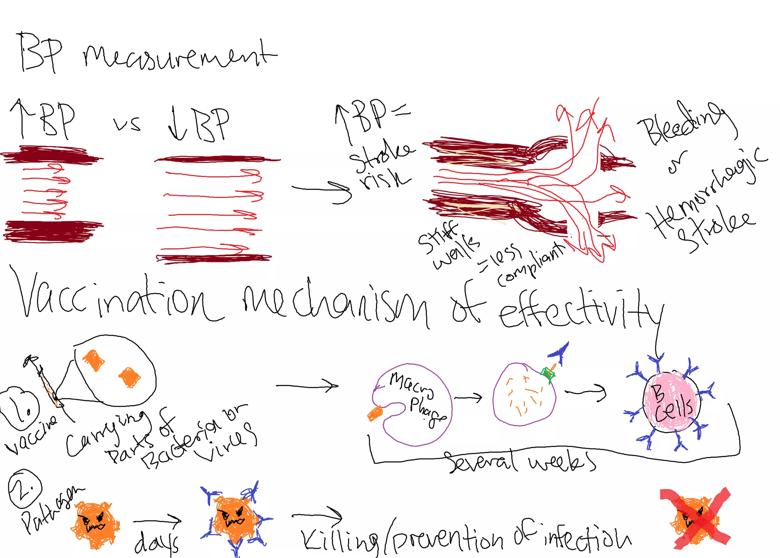 BP measurement
↑BP vs ↓BP
↑BP =
stroke
risk
Bleeding
or
Hemorrhagic
stroke
stiff
walls
= less
compliant
Vaccination mechanism of effectivity
1.
vaccine
Carrying
parts of
Bacteria or
virus
Macro
Phage
B
Cells
Several weeks
2.
Pathogen
days
Killing/prevention of infection